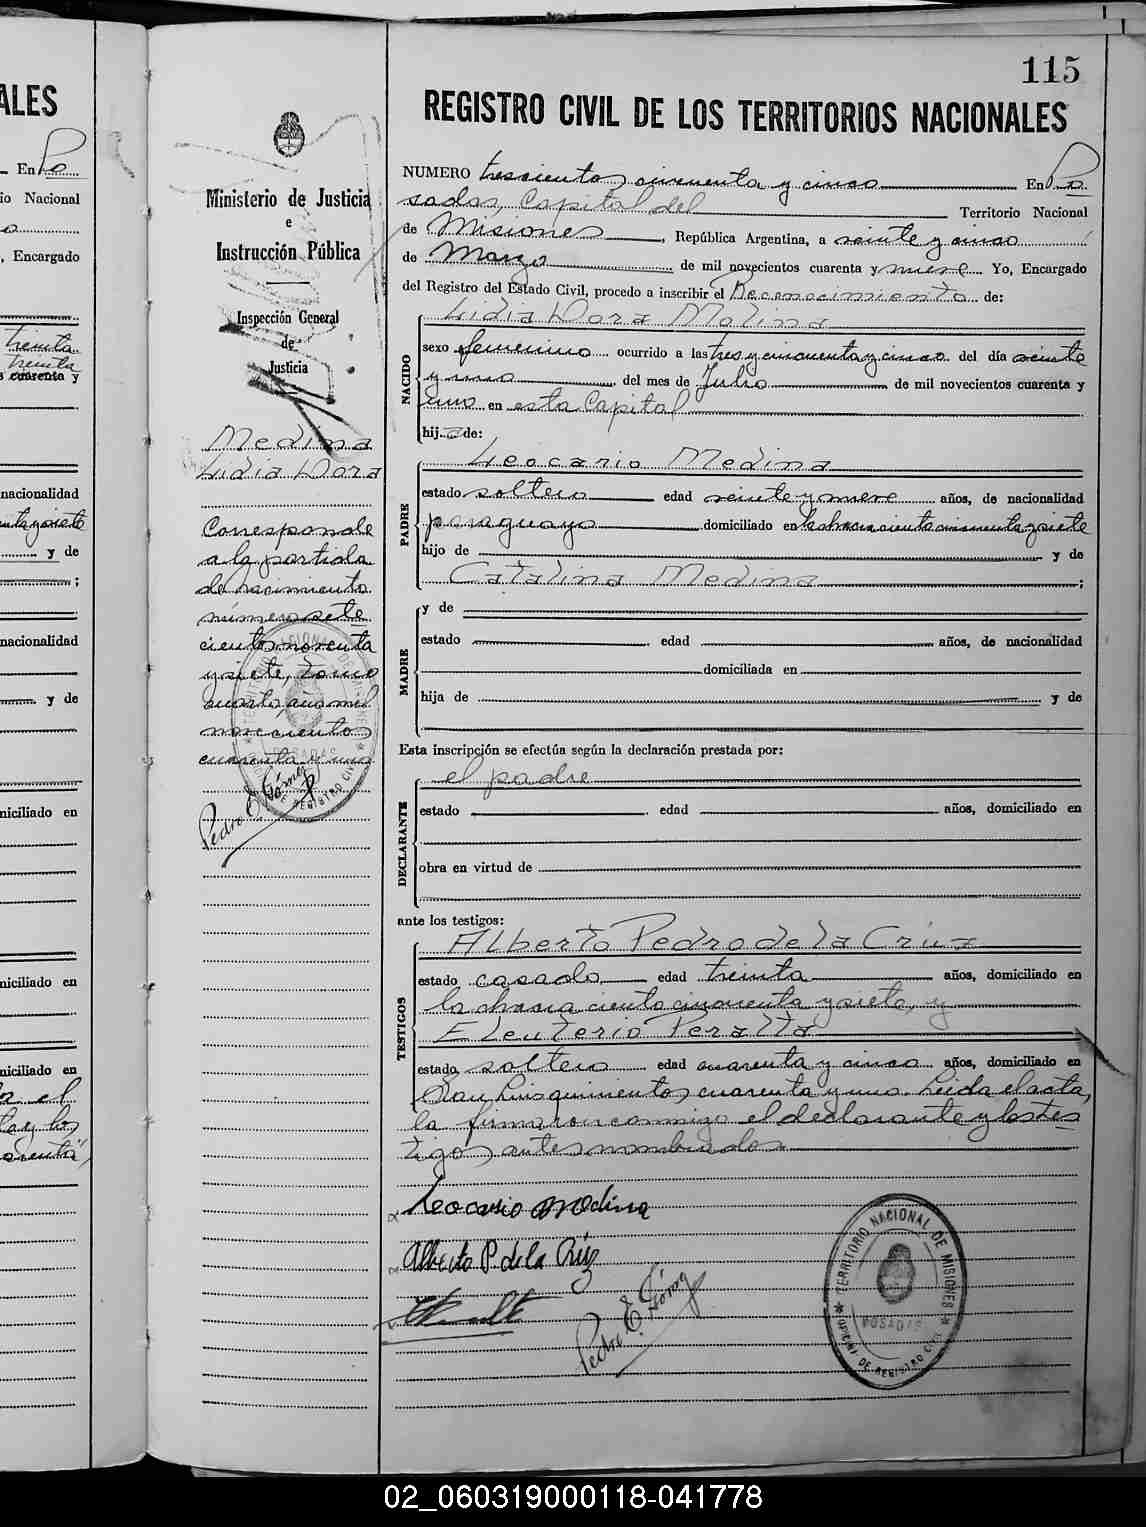 115
REGISTRO CIVIL DE LOS TERRITORIOS NACIONALES
NUMERO trescientos cincuenta y cinco En Po
sadas, Capital del Territorio Nacional
de Misiones, República Argentina, a veinte y cinco
de Marzo de mil novecientos cuarenta y nueve Yo, Encargado
del Registro del Estado Civil, procedo a inscribir el Reconocimiento de:
NACIDO
Lidia Dora Molina
sexo femenino ocurrido a las tres y cincuenta y cinco del día veinte
y uno del mes de Julio de mil novecientos cuarenta y
uno en esta Capital
hija de:
PADRE
Leocario Medina
estado soltero edad veinte y nueve años, de nacionalidad
paraguayo domiciliado en la chacra ciento cincuenta y siete
hijo de y de
Catalina Medina;
MADRE
y de
estado edad años, de nacionalidad
domiciliada en
hija de y de
Esta inscripción se efectúa según la declaración prestada por:
DECLARANTE
el padre
estado edad años, domiciliado en
obra en virtud de
ante los testigos:
TESTIGOS
Alberto Pedro de la Cruz
estado casado edad treinta años, domiciliado en
la chacra ciento cincuenta y siete, y
Eleuterio Peralta
estado soltero edad cuarenta y cinco años, domiciliado en
San Luis quinientos cuarenta y uno. Leida el acta,
la firmaron conmigo el declarante y los tes
tigos antes nombrados
Leocario Medina
Alberto P. de la Crúz
Pedro E. Gómez
TERRITORIO NACIONAL DE MISIONES
POSADAS
OFICINA DE REGISTRO CIVIL
Ministerio de Justicia
e
Instrucción Pública
Inspección General
de
Justicia
Medina
Lidia Dora
Corresponde
a la partida
de nacimiento
número sete
cientos noventa
y siete, tomo
cuarto, año mil
novecientos
cuarenta y uno
Pedro E. Gómez
TERRITORIO NACIONAL DE MISIONES
POSADAS
OFICINA DE REGISTRO CIVIL
ALES
En Po
io Nacional
, Encargado
treinta
treinta
s cuarenta y
nacionalidad
y de
;
nacionalidad
y de
niciliado en
niciliado en
niciliado en
02_060319000118-041778